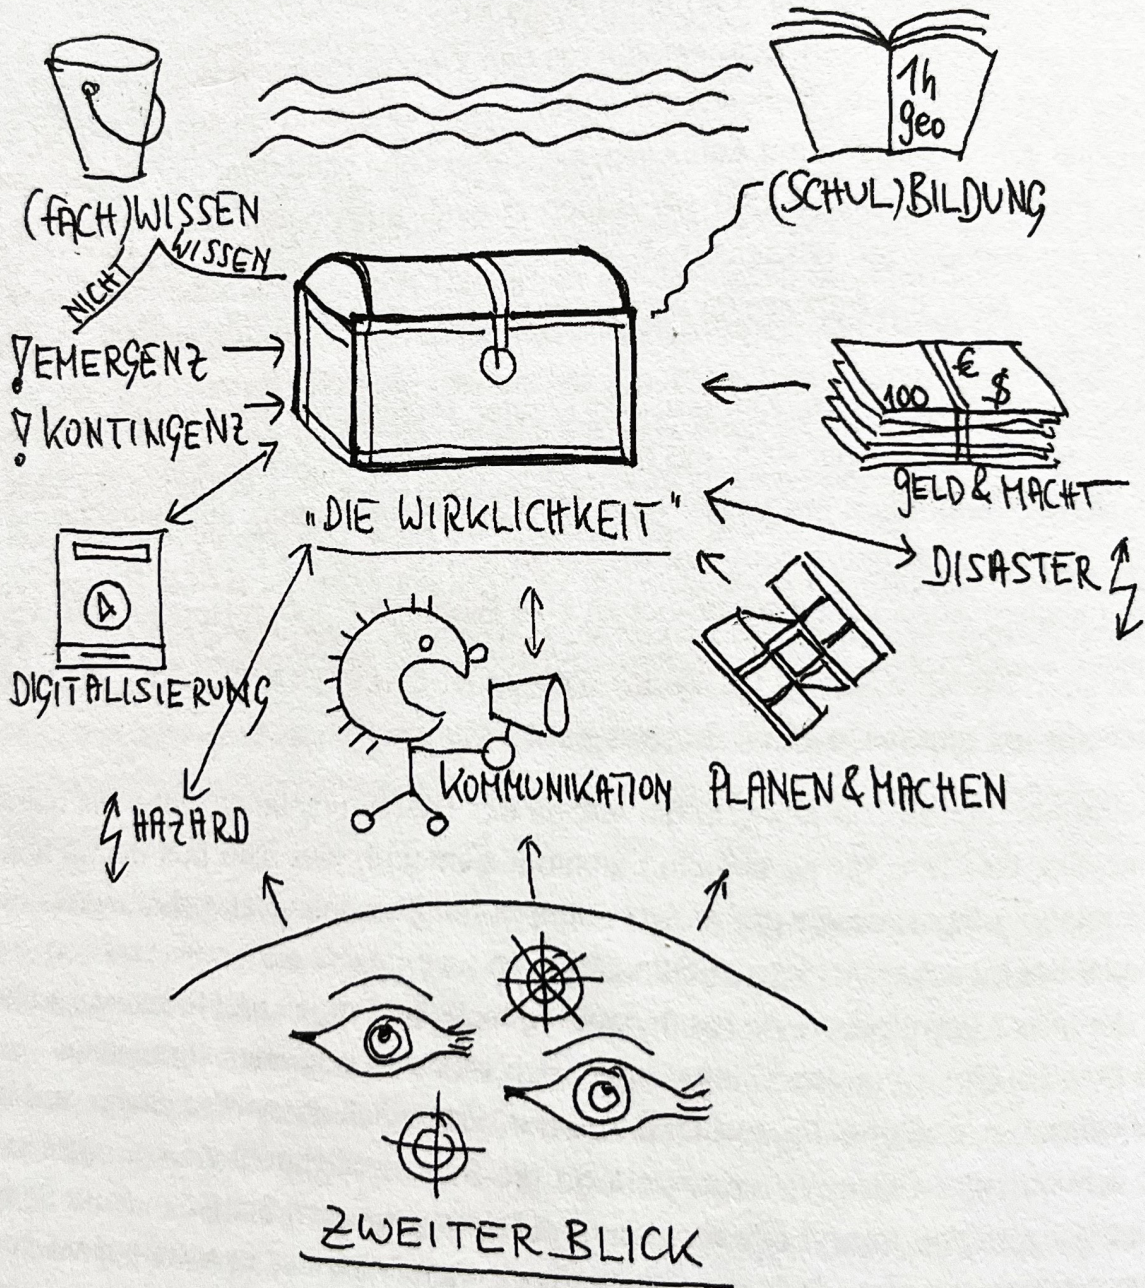 1h
geo
(FACH)WISSEN
(SCHUL)BILDUNG
NICHT WISSEN
! EMERGENZ
! KONTINGENZ
100 € $
GELD & MACHT
„DIE WIRKLICHKEIT"
DISASTER
DIGITALISIERUNG
KOMMUNIKATION
PLANEN & MACHEN
HAZARD
ZWEITER BLICK